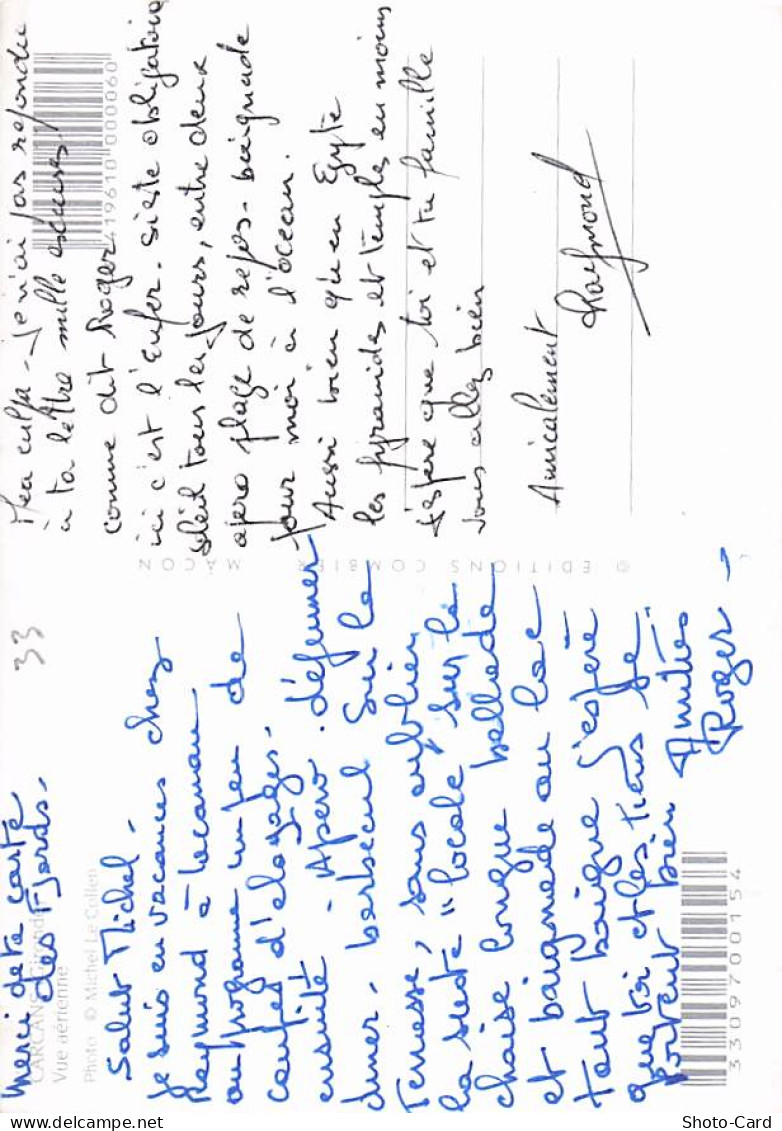 Merci de ta carte
des Fjords.
CARCANS (Gironde)
Vue aérienne
Photo © Michel Le Collen
33
Salut Michel -
Je suis en vacances chez
Raymond à Lacanau
au programme un peu de
coupes d'élagages.
ensuite Apéro. déjeuner
diner. barbecue sur la
Terrasse, sans oublier
la sieste "locale" sur la
chaise longue ballade
et baignade au lac
tout baigne j'espère
que toi et les tiens se
portent bien
Amitiés
Roger -
3309700154
© EDITIONS COMBIER MÂCON
Mea culpa - Je n'ai pas repondu
à ta lettre mille excuses!
comme dit Roger
ici c'est l'Enfer. sieste obligatoire
soleil tous les jours, entre deux
apero plage de repos - baignade
pour moi à l'océan.
Aussi bien qu'en Egypte
les pyramides et temples en moins
J'espère que toi et ta famille
vous allez bien
Amicalement
Raymond
419610 000060
Shoto-Card
www.delcampe.net